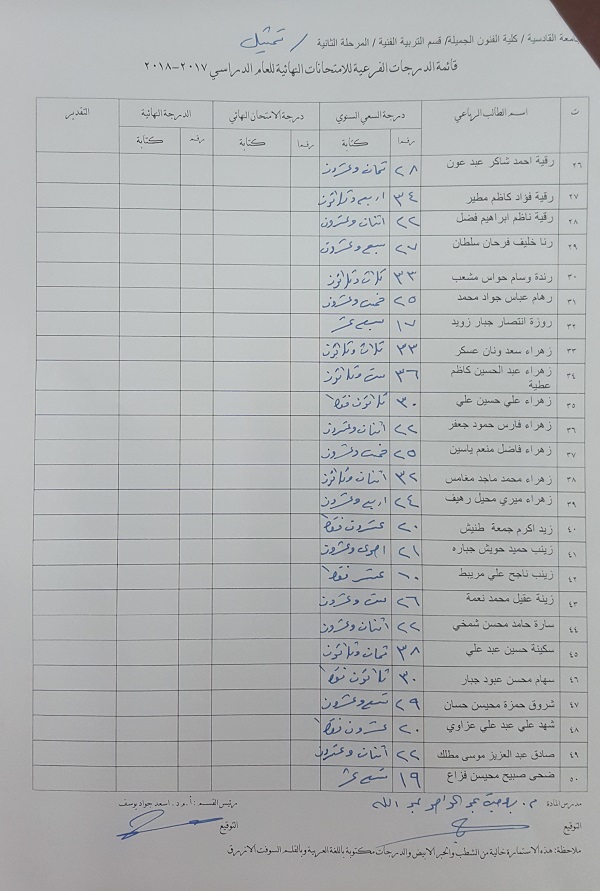 جامعة القادسية / كلية الفنون الجميلة/ قسم التربية الفنية / المرحلة الثانية / تمثيل
قائمة الدرجات الفرعية للامتحانات النهائية للعام الدراسي ٢٠١٧-٢٠١٨
ت اسم الطالب الرباعي درجة السعي السنوي درجة الامتحان النهائي الدرجة النهائية التقدير
رقما كتابة رقما كتابة رقما كتابة
٢٦ رقية احمد شاكر عبد عون ٢٨ ثمان وعشرون
٢٧ رقية فؤاد كاظم مطير ٣٤ اربع وثلاثون
٢٨ رقية ناظم ابراهيم فضل ٢٢ اثنان وعشرون
٢٩ رنا خليف فرحان سلطان ٢٧ سبع وعشرون
٣٠ رندة وسام حواس مشعب ٣٣ ثلاث وثلاثون
٣١ رهام عباس جواد محمد ٢٥ خمس وعشرون
٣٢ روزة انتصار جبار زويد ١٧ سبع عشر
٣٣ زهراء سعد ونان عسكر ٣٣ ثلاث وثلاثون
٣٤ زهراء عبد الحسين كاظم عطية ٣٦ ست وثلاثون
٣٥ زهراء علي حسين علي ٣٠ ثلاثون فقط
٣٦ زهراء فارس حمود جعفر ٢٢ اثنان وعشرون
٣٧ زهراء فاضل منعم ياسين ٢٥ خمس وعشرون
٣٨ زهراء محمد ماجد مغامس ٣٢ اثنان وثلاثون
٣٩ زهراء ميري محيل رهيف ٢٤ اربع وعشرون
٤٠ زيد اكرم جمعة طنيش ٢٠ عشرون فقط
٤١ زينب حميد حويش جباره ٢١ احدى وعشرون
٤٢ زينب ناجح علي مريبط ١٠ عشر فقط
٤٣ زينة عقيل محمد نعمة ٢٦ ست وعشرون
٤٤ سارة حامد محسن شمخي ٢٢ اثنان وعشرون
٤٥ سكينة حسين عبد علي ٣٨ ثمان وثلاثون
٤٦ سهام محسن عبود جبار ٣٠ ثلاثون فقط
٤٧ شروق حمزة محيسن حسان ٢٩ تسع وعشرون
٤٨ شهد علي عبد علي عزاوي ٢٠ عشرون فقط
٤٩ صادق عبد العزيز موسى مطلك ٢٢ اثنان وعشرون
٥٠ ضحى صبيح محيسن فزاع ١٩ تسع عشر
مدرس المادة م. عبد الله رئيس القسم : أ.م.د. اسعد جواد يوسف
التوقيع التوقيع
ملاحظة: هذه الاستمارة خالية من الشطب والحبر الابيض والدرجات مكتوبة باللغة العربية وبالقلم السوفت الازرق